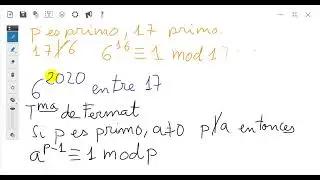 p es primo, 17 primo.
17∤6 6^16 ≡ 1 mod 17 ...
6^2020 entre 17
Tma de Fermat
Si p es primo, a≠0 p∤a entonces
a^p-1 ≡ 1 mod p